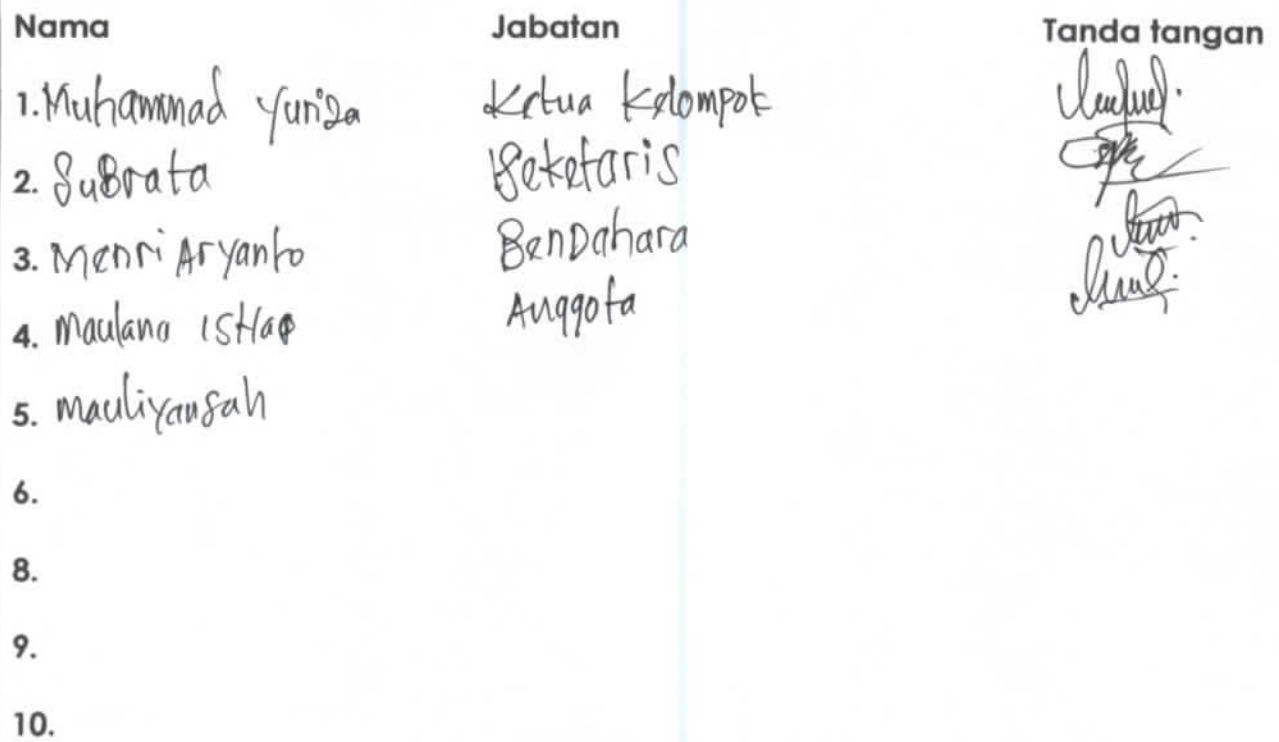 Nama Jabatan Tanda tangan
1. Muhammad Yuriza Ketua Kelompok
2. SuBrata Seketaris
3. Menri Aryanto BenDahara
4. Maulana ISHaq Anggota
5. mauliyansah
6.
8.
9.
10.